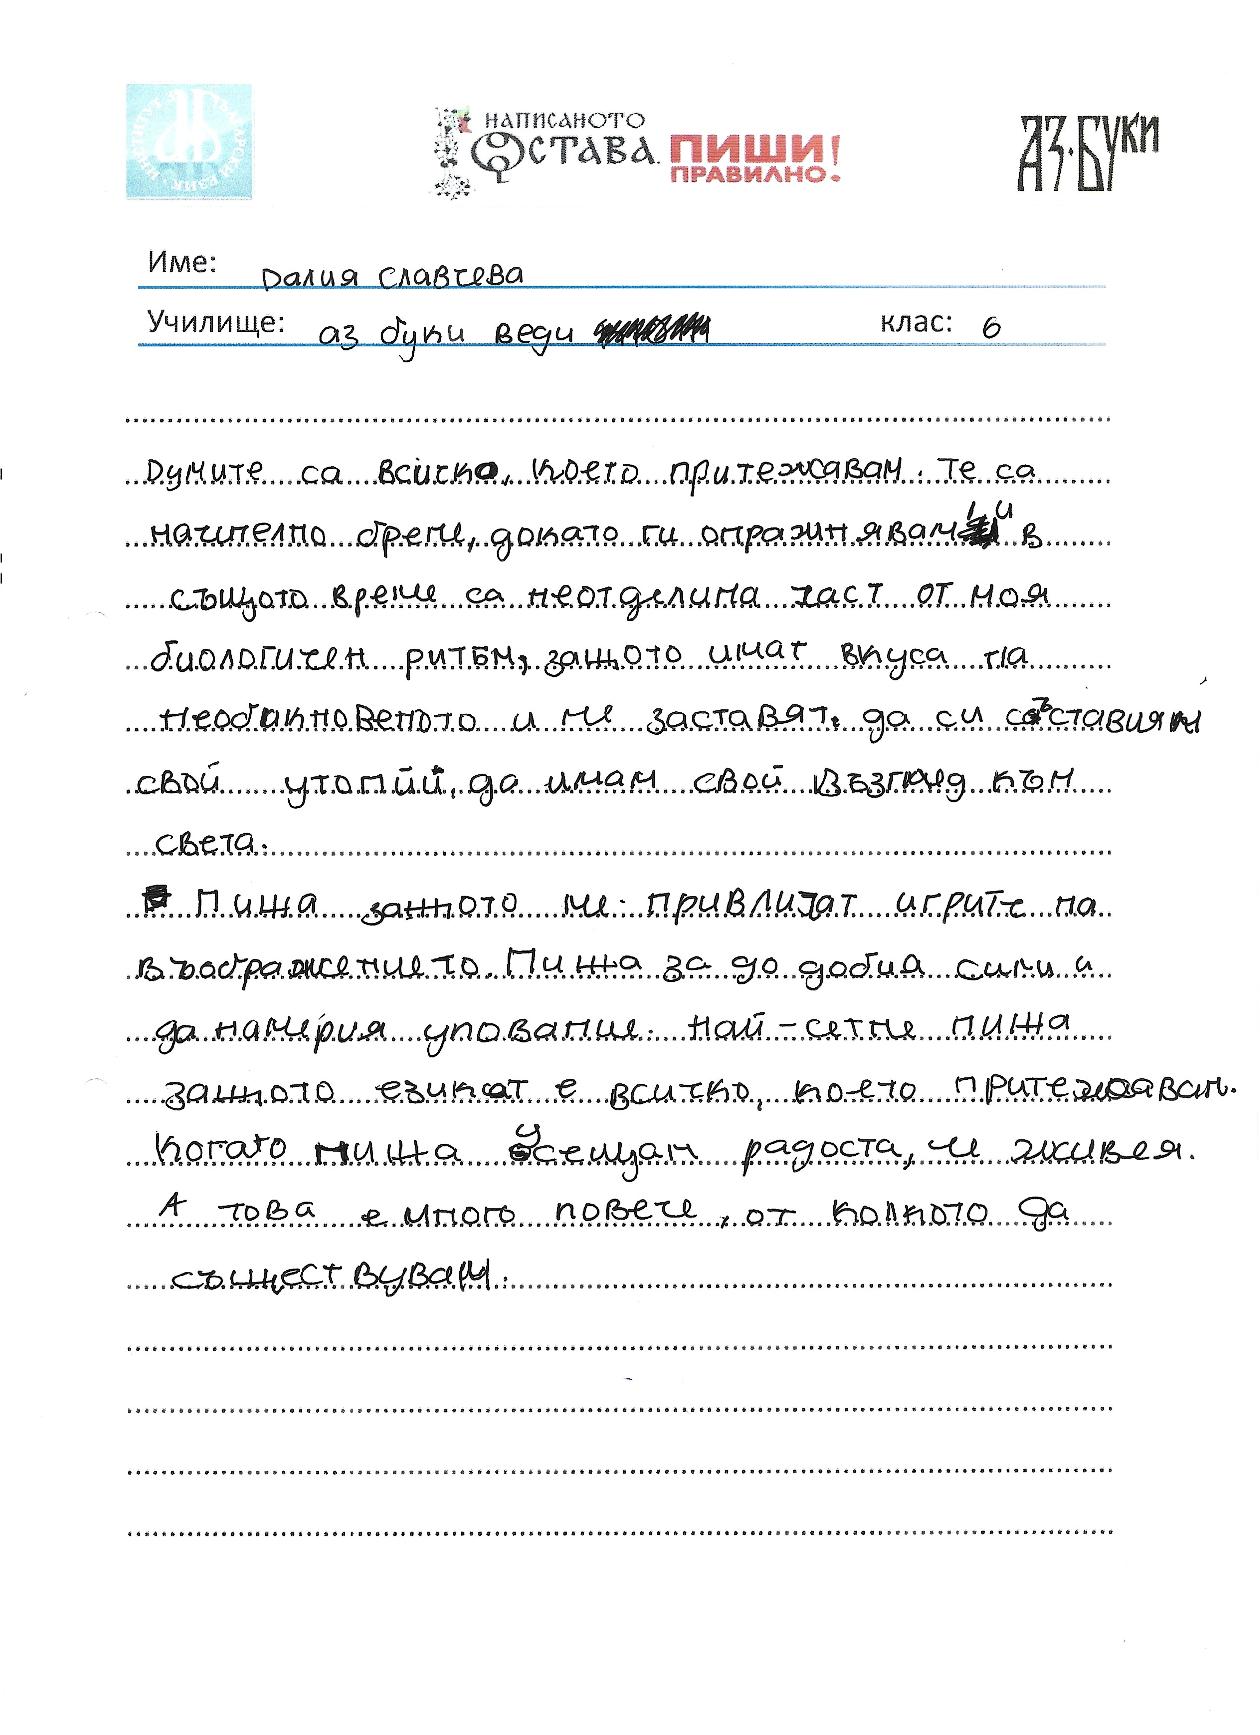 ИНСТИТУТ ЗА БЪЛГАРСКИ ЕЗИК
НАПИСАНОТО
ОСТАВА. ПИШИ!
ПРАВИЛНО.
АЗ·БУКИ
Име: Далия Славчева
Училище: аз буки веди клас: 6
Думите са всичко, което притежавам. Те са
начупено бреме, докато ги опразнявам и в
същото време са неотделима част от моя
биологичен ритъм, защото имат вкуса на
необикновеното и ме заставят, да си съставиям
свой утопий, да имам свой възглед към
света.
Пиша защото ме привличат игрите на
въображението. Пиша за до добия сили и
да намерия упование. Най-сетне пиша
защото езикат е всичко, което притежавам.
Когато пиша усещам радоста, че живея.
А това е много повече, от колкото да
съществувам.